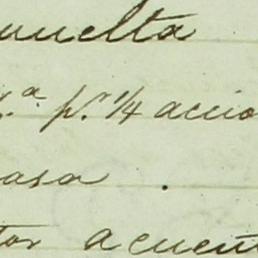 uelta
ª. p.ʳ 1/4 accio
asa .
tor acuen